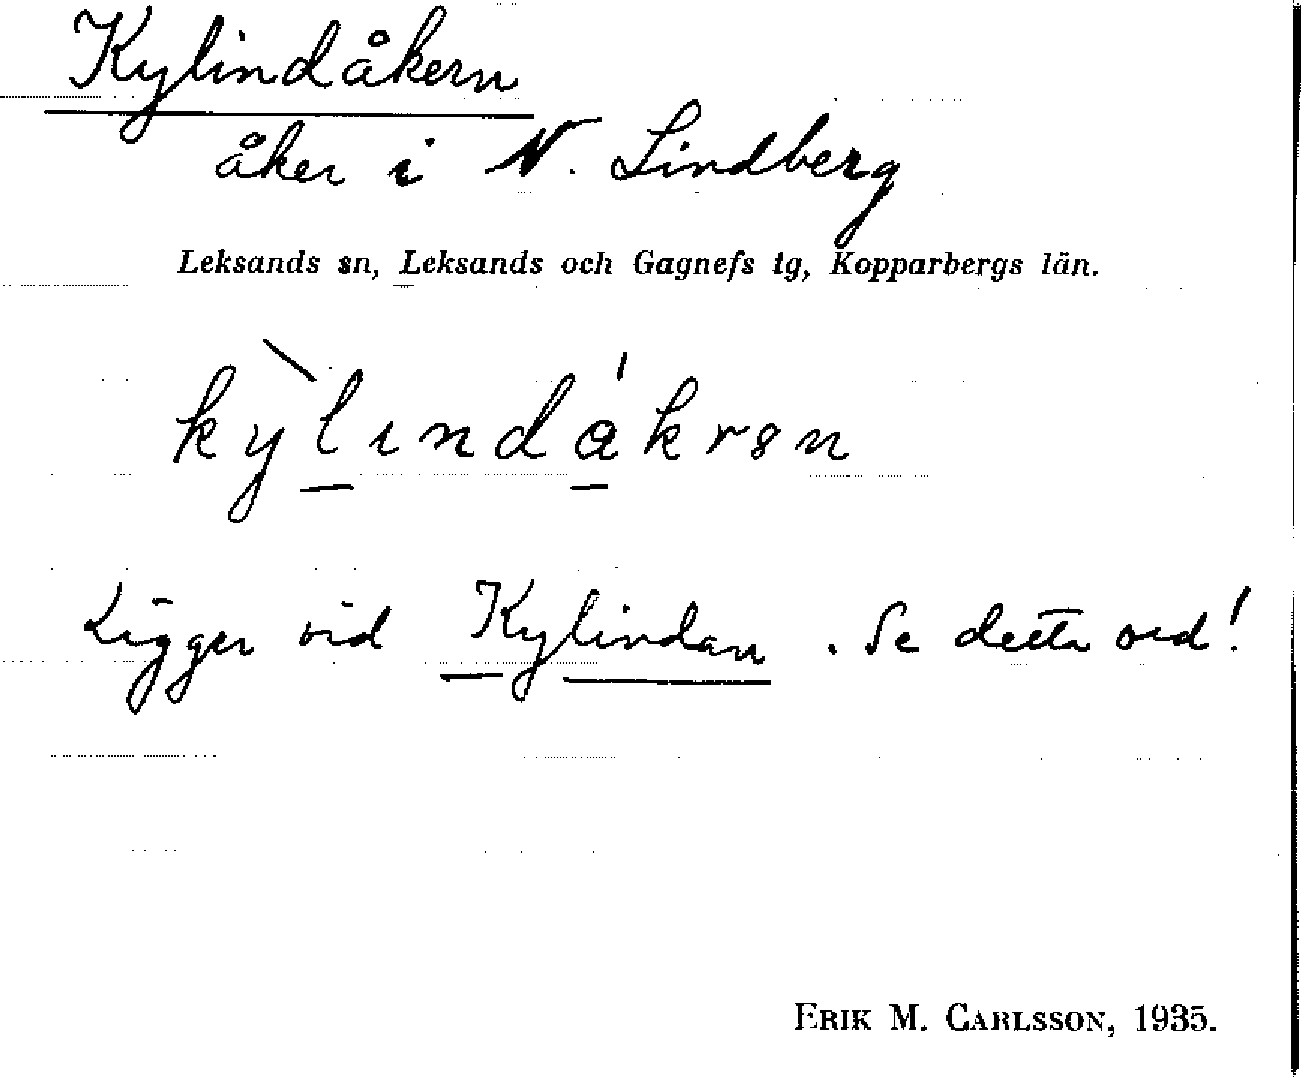 Kylindåkern
åker i N. Lindberg
Leksands sn, Leksands och Gagnefs tg, Kopparbergs län.
kỳ̖lındákrɘn
Ligger vid Kylindan. Se detta ord!
ERIK M. CARLSSON, 1935.